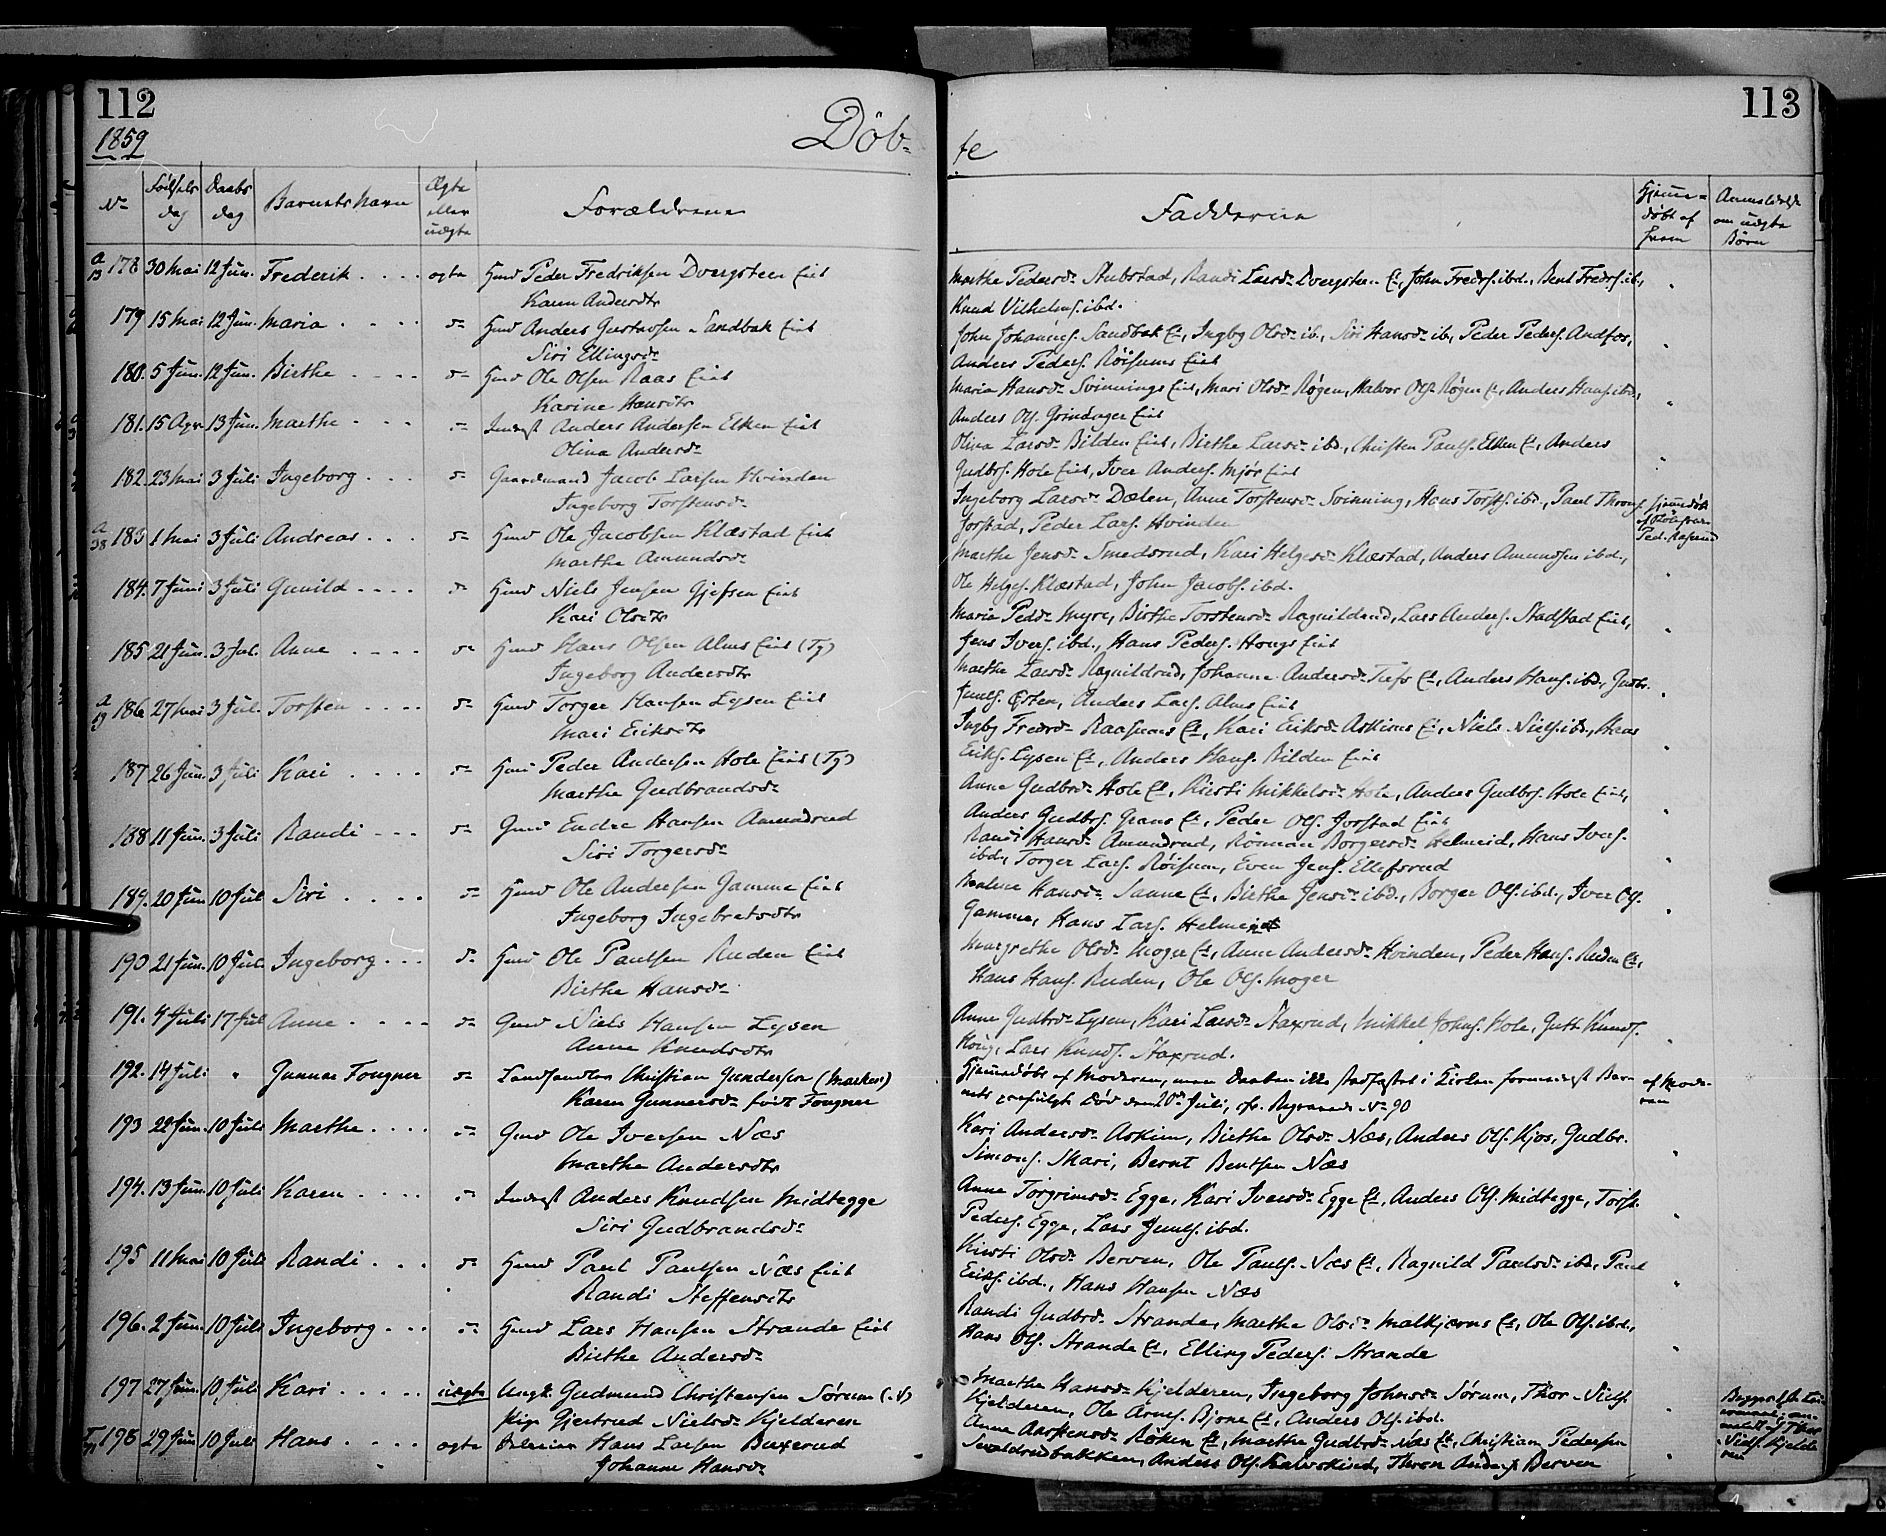 112
1859
Döb-
No
Födsels dag
Daabs dag
Barnets Navn
Ægte eller uægte
Forældrene
178 30 Mai 12 Jun. Frederik . . . . ægte Gmd Peder Fredriksen Dvergsten Eiet
Karen Andersdtr
179 15 Mai 12 Jun. Maria . . . . Gmd Anders Gustavsen Sandbak Eiet
Siri Ellingsdr
180. 5 Jun. 12 Jun. Birthe . . . . Gmd Ole Olsen Raas Eiet
Karine Hansdtr
181. 15 Apr. 13 Jun. Marthe . . . Inderst Anders Andersen Elken Eiet
Olina Andersdr
182. 23 Mai 3 Juli Ingeborg . . . Gaardmand Jacob Larsen Hvinden
Ingeborg Torstensdr
183 1 Mai 3 Juli Andreas . . . Gmd Ole Jacobsen Klæstad Eiet
Marthe Amundsdr
184. 7 Juni 3 Juli Gunild . . . . Gmd Niels Jensen Gjefsen Eiet
Kari Olsdtr
185 21 Jun. 3 Jul. Anne . . . . Gmd Hans Olsen Alms Eiet (Tg)
Ingeborg Andersdtr
186. 27 Mai 3 Jul. Torsten . . . . Gmd Torger Hansen Lysen Eiet
Mari Eriksdtr
187 26 Jun. 3 Juli Kari . . . . Gmd Peder Andersen Hole Eiet (Tg)
Marthe Gudbrandsdr
188 11 Jun. 3 Juli Randi . . . Gmd Endre Hansen Amundrud
Siri Torgersdr
189. 20 Jun 10 Jul Siri . . . . Gmd Ole Andersen Gamme Eiet
Ingeborg Ingebretsdtr
190 21 Jun. 10 Jul. Ingeborg . . . Gmd Ole Paulsen Ruden Eiet
Birthe Hansdr
191. 4 Juli 17 Jul Anne . . . . Gmd Niels Hansen Lysen
Anne Knudsdtr
192. 14 Juli " Gunnar Fougner Landhandler Christian Gundersen (Marken)
Karen Gunnersdr født Fougner
193 22 Jun. 10 Juli Marthe . . . . Gmd Ole Iversen Næs
Marthe Andersdtr
194. 13 Jun. 10 Juli Karen . . . . Inderst Anders Knudsen Midtegge
Siri Gudbrandsdr
195 11 Mai 10 Juli Randi . . . Gmd Paul Paulsen Næs Eiet
Randi Steffensdtr
196. 2 Jun. 10 Juli Ingeborg . . . Gmd Lars Hansen Strande Eiet
Birthe Andersdr
197 27 Jun. 10 Juli Kari . . . . uægte Ungk. Gudmund Christensen Sørum
Pige Gjertrud Nielsdr Kjelderen
198 29 Jun 10 Juli Hans . . . . ægte Hans Larsen Buxerud
Johanne Hansdr
113
te
Fadderne
Hjemmedöbt af hvem
Anmeldelse om uægte Börn
Marthe Pedersdr Stubstad, Randi Larsdr Dvergsten Et, John Fredrs. ibd., Bent Fredrs. ib.,
Knud Vilhelms. ibd.
John Johannes. Sandbak Et, Ingbg Olsdr ib., Siri Hansdr ib., Peder Peders. Andfos,
Anders Peders. Röisums Eiet
Maria Hansdr Svinnings Eiet, Mari Olsdr Røgen, Halvor Ols. Røgen Et, Anders Hans. ibd.,
Anders Ols. Grindager Eiet
Olina Larsdr Bilden Eiet, Birthe Larsdr ibd., Christen Pauls. Elken Et, Anders
Gudbrs. Hole Eiet, Iver Anders. Mjør Eiet
Ingeborg Larsdr Dælen, Anne Torstensdr Svinning, Hans Torsts. ibd., Paul Throns.
Jorstad, Peder Lars. Hvinden
Hjemmedöbt af
Marthe Jensdr Smedsrud, Kari Helgesdr Klæstad, Anders Amundsen ibd.,
Ole Helges. Klæstad, John Jacobs. ibd.
Maria Pedsdr Myre, Birthe Torstensdr Ragnildrud, Lars Anders. Stadstad Eiet,
Jens Ivers. ibd., Hans Peders. Hougs Eiet
Marthe Larsdr Ragnildrud, Johanne Andersdr Et, Anders Hans. ibd., Gudbr.
Juuls. Østen, Anders Lars. Alms Eiet
Ingbg Fredrsdr Raasums Et, Kari Eriksdr Askims Et, Niels Niels. ibd., Hans
Eriks. Lysen Et, Anders Hans. Bilden Eiet
Anne Gudbrsdr Hole Et, Kirsti Mikkelsdr Hole, Anders Gudbrs. Hole Eiet,
Anders Gudbrs. Grans Et, Peder Ols. Jorstad Eiet
Randi Hansdr Amundrud, Rönnau Borgersdr Helmeid, Hans Ivers.
ibd., Torger Lars. Röisum, Even Jens. Ellefsrud
Hansdr Sanne Et, Birthe Jensdr ibd., Borger Ols. ibd., Iver Ols.
Gamme, Hans Lars. Helmeid
Margrethe Olsdr Moger Et, Anne Andersdr Hvinden, Peder Hans. Ruden Et,
Hans Hans. Ruden, Ole Ols. Moger
Anne Gudbrsdr Lysen, Kari Larsdr Staxrud, Mikkel Johns. Hole, Gutt. Knuds.
Houg, Lars Knuds. Staxrud.
Hjemmedöbt af Moderen, men Daaben ikke stadfæstet i Kirken formedelst Bar-
nets paafulgte Död den 20de Juli, cfr. Begravede No 90
af Moderen
Kari Andersdr Askim, Birthe Olsdr Næs, Anders Ols. Kjos, Gudbr.
Simens. Skari, Bernt Bentsen Næs
Anne Torgrimsdr Egge, Kari Iversdr Egge Et, Anders Ols. Midtegge, Torst.
Peders. Egge, Lars Juuls. ibd.
Kirsti Olsdr Berven, Ole Pauls. Næs Et, Ragnild Paulsdr ibd., Paul
Eriks. ibd., Hans Hansen Næs
Randi Gudbrsdr Strande, Marthe Olsdr Malkjærns Et, Ole Ols. ibd.,
Hans Ols. Strande Et, Elling Peders. Strande
Marthe Hansdr Kjelderen, Ingeborg Johnsdr Sørum, Thor Niels.
Kjelderen, Ole Arnes. Bjone Et, Anders Ols. ibd.
Anne Aanstensdr Røken Et, Marthe Gudbrsdr Næs Et, Christian Pedersen
Sevaldrudbakken, Anders Ols. Thron Anders. Berven
anmeldt af Thor Niels. Kjelderen